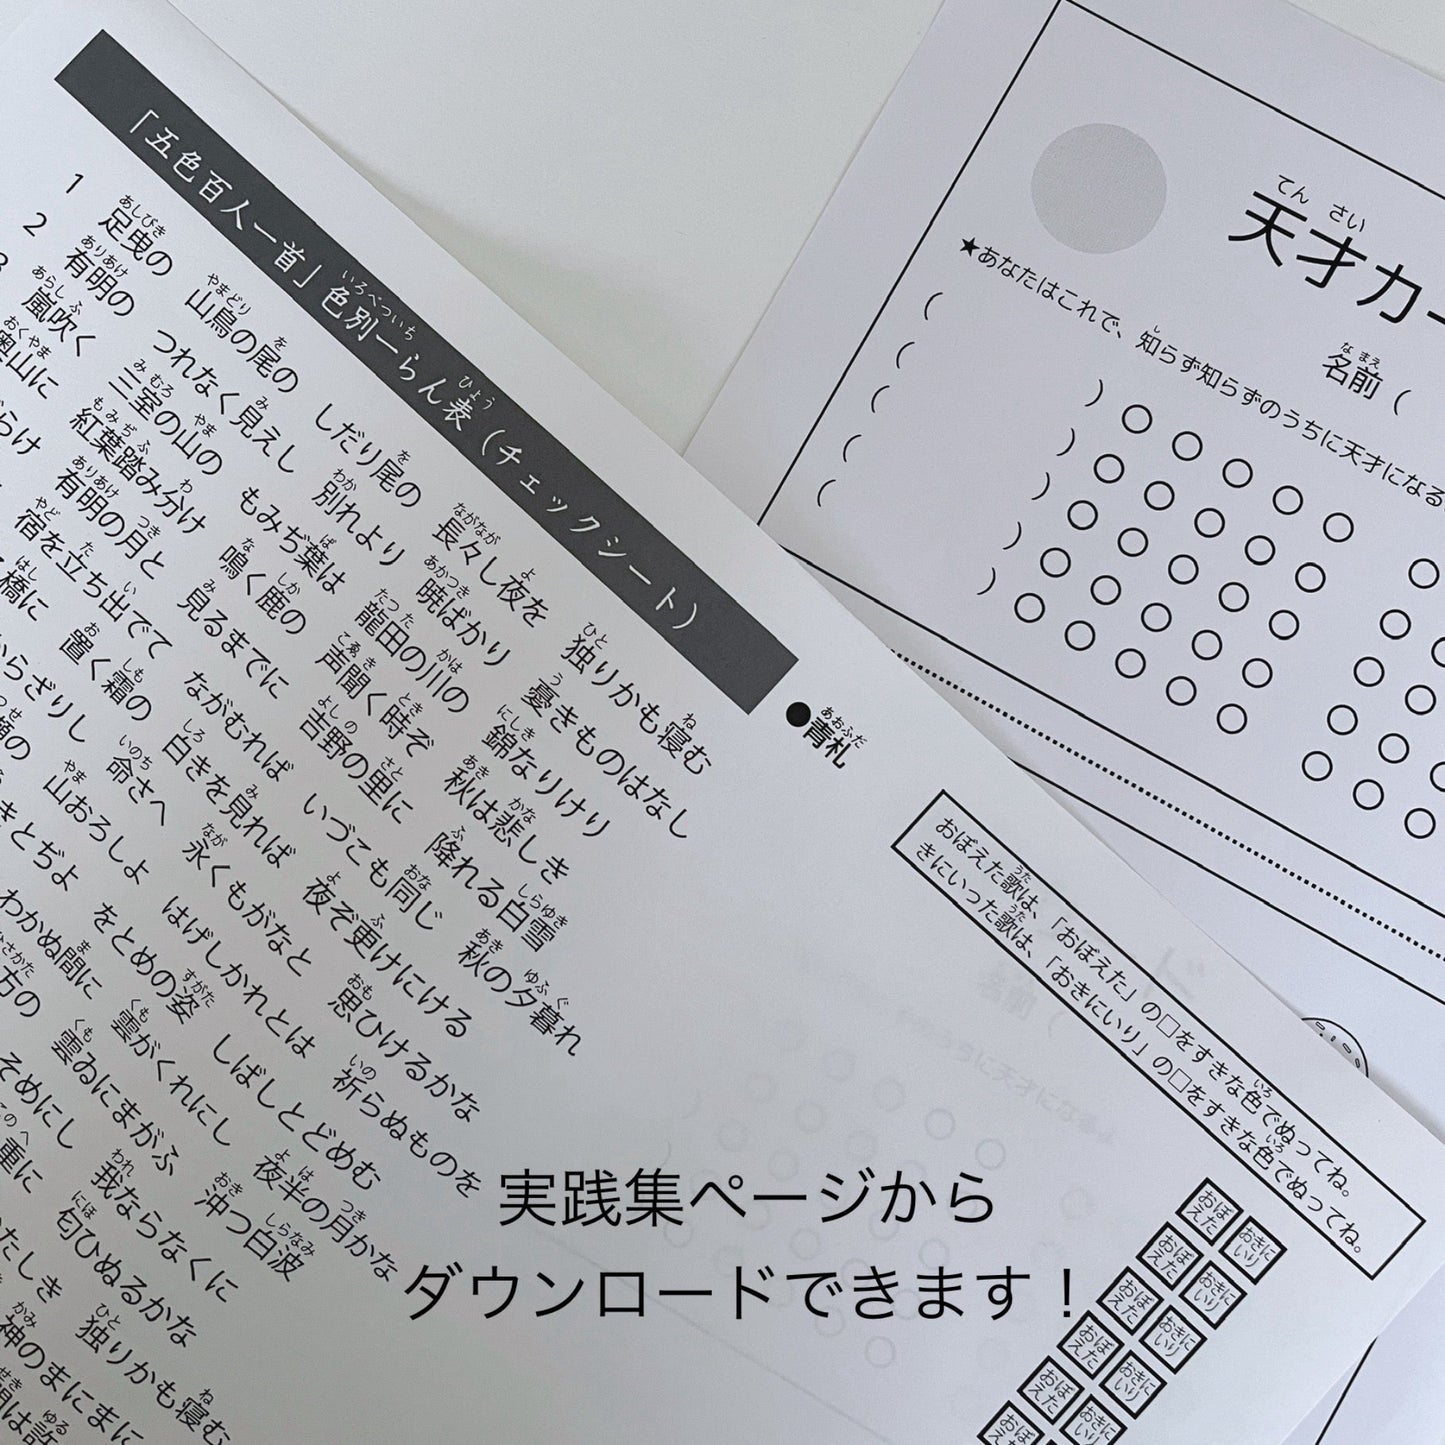 「五色百人一首」色別一らん表（チェックシート）
●青札
おぼえた歌は、「おぼえた」の□をすきな色でぬってね。
きにいった歌は、「おきにいり」の□をすきな色でぬってね。
1 足曳の 山鳥の尾の しだり尾の 長々し夜を 独りかも寝む
2 有明の つれなく見えし 別れより 暁ばかり 憂きものはなし
嵐吹く 三室の山の もみぢ葉は 龍田の川の 錦なりけり
奥山に 紅葉踏み分け 鳴く鹿の 声聞く時ぞ 秋は悲しき
有明の月と 見るまでに 吉野の里に 降れる白雪
宿を立ち出でて ながむれば いづこも同じ 秋の夕暮れ
橋に 置く霜の 白きを見れば 夜ぞ更けにける
からざりし 命さへ 永くもがなと 思ひけるかな
山おろしよ はげしかれとは 祈らぬものを
きとぢよ をとめの姿 しばしとどめむ
わかぬ間に 雲がくれにし 夜半の月かな
雲ゐにまがふ 沖つ白波
そめにし 我ならなくに
匂ひぬるかな
独りかも寝む
神のまにまに
おぼえた おきにいり
おぼえた おきにいり
おぼえた おきにいり
おぼえた おきにいり
おぼえた おきにいり
天才カー
名前（
★あなたはこれで、知らず知らずのうちに天才になる
実践集ページから
ダウンロードできます！